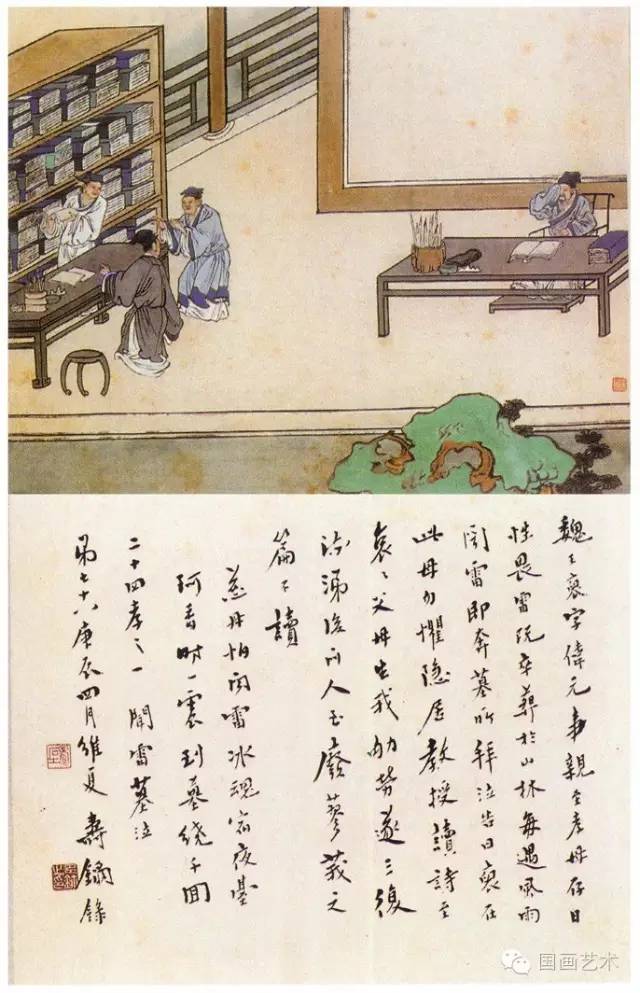 魏王裒字偉元事親至孝母存日
性畏雷既卒葬於山林每遇風雨
聞雷即奔墓所拜泣告曰裒在
此母勿懼隱居教授讀詩至
哀〻父母生我劬勞遂三復
流涕後門人至廢蓼莪之
篇不讀
慈母怕聞雷冰魂宿夜臺
阿香時一震到墓繞千囬
二十四孝之一 聞雷墓泣
弟七十八庚辰四月維夏 壽 錄
国画艺术